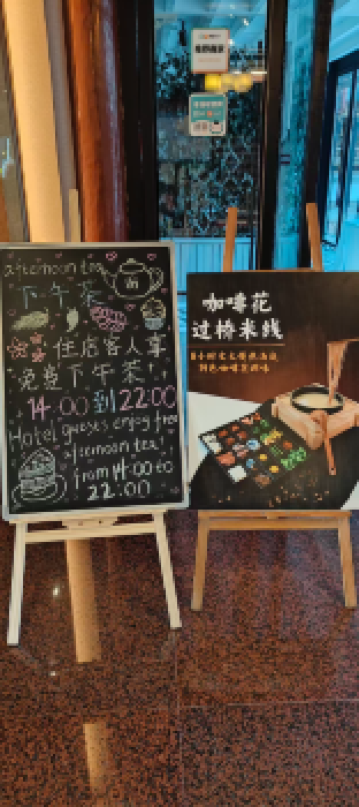 afternoon tea
下午茶
住店客人享
免费下午茶
14:00到22:00
Hotel guests enjoy free
afternoon tea
from 14:00 to
22:00
咖啡花
过桥米线